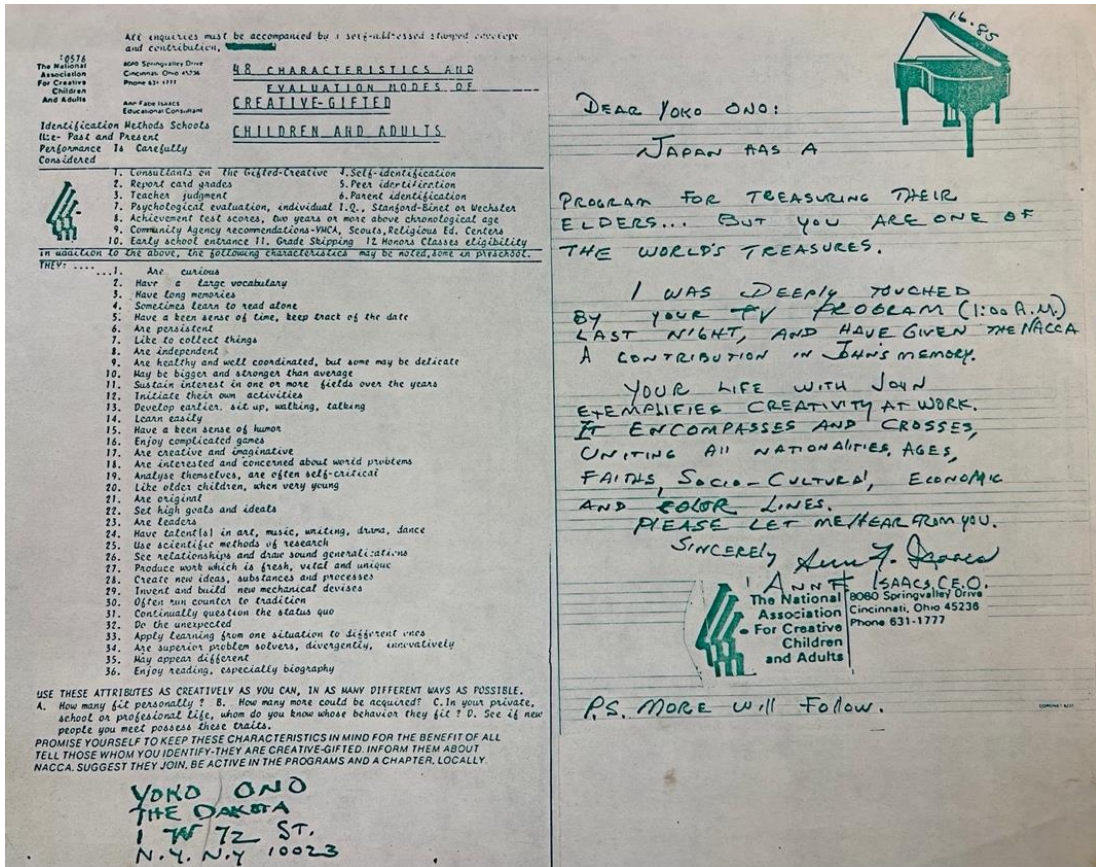 All inquiries must be accompanied by a self-addressed stamped envelope
and contribution,
The National
Association
For Creative
Children
And Adults
8080 Springvalley Drive
Cincinnati, Ohio 45236
Phone 631-1777
Ann Fabe Isaacs
Educational Consultant
48 CHARACTERISTICS AND
EVALUATION MODES OF
CREATIVE-GIFTED
CHILDREN AND ADULTS
Identification Methods Schools
Use- Past and Present
Performance Is Carefully
Considered
1. Consultants on the Gifted-Creative 4. Self-identification
2. Report card grades 5. Peer identification
3. Teacher judgment 6. Parent identification
7. Psychological evaluation, individual I.Q., Stanford-Binet or Wechsler
8. Achievement test scores, two years or more above chronological age
9. Community Agency recommendations-YMCA, Scouts, Religious Ed. Centers
10. Early school entrance 11. Grade Skipping 12 Honors Classes eligibility
in addition to the above, the following characteristics may be noted, some in preschool.
THEY: .... ...1. Are curious
2. Have a large vocabulary
3. Have long memories
4. Sometimes learn to read alone
5. Have a keen sense of time, keep track of the date
6. Are persistent
7. Like to collect things
8. Are independent
9. Are healthy and well coordinated, but some may be delicate
10. May be bigger and stronger than average
11. Sustain interest in one or more fields over the years
12. Initiate their own activities
13. Develop earlier. sit up, walking, talking
14. Learn easily
15. Have a keen sense of humor
16. Enjoy complicated games
17. Are creative and imaginative
18. Are interested and concerned about world problems
19. Analyse themselves, are often self-critical
20. Like older children, when very young
21. Are original
22. Set high goals and ideals
23. Are leaders
24. Have talent(s) in art, music, writing, drama, dance
25. Use scientific methods of research
26. See relationships and draw sound generalizations
27. Produce work which is fresh, vital and unique
28. Create new ideas, substances and processes
29. Invent and build new mechanical devises
30. Often run counter to tradition
31. Continually question the status quo
32. Do the unexpected
33. Apply learning from one situation to different ones
34. Are superior problem solvers, divergently, innovatively
35. May appear different
36. Enjoy reading, especially biography
USE THESE ATTRIBUTES AS CREATIVELY AS YOU CAN, IN AS MANY DIFFERENT WAYS AS POSSIBLE.
A. How many fit personally ? B. How many more could be acquired? C. In your private,
school or profesional life, whom do you know whose behavior they fit ? D. See if new
people you meet possess these traits.
PROMISE YOURSELF TO KEEP THESE CHARACTERISTICS IN MIND FOR THE BENEFIT OF ALL
TELL THOSE WHOM YOU IDENTIFY-THEY ARE CREATIVE-GIFTED. INFORM THEM ABOUT
NACCA. SUGGEST THEY JOIN, BE ACTIVE IN THE PROGRAMS AND A CHAPTER, LOCALLY.
YOKO ONO
THE DAKOTA
1 W 72 ST.
N.Y. N.Y 10023
DEAR YOKO ONO:
JAPAN HAS A
PROGRAM FOR TREASURING THEIR
ELDERS... BUT YOU ARE ONE OF
THE WORLD'S TREASURES.
I WAS DEEPLY TOUCHED
BY YOUR TV PROGRAM (1:00 A.M.)
LAST NIGHT, AND HAVE GIVEN THE NACCA
A CONTRIBUTION IN JOHN'S MEMORY.
YOUR LIFE WITH JOHN
EXEMPLIFIES CREATIVITY AT WORK.
IT ENCOMPASSES AND CROSSES,
UNITING All NATIONALITIES, AGES,
FAITHS, SOCIO-CULTURAL, ECONOMIC
AND COLOR LINES.
PLEASE LET ME HEAR FROM YOU.
SINCERELY Ann F. Isaacs
ANN F ISAACS, C.E.O.
The National
Association
For Creative
Children
and Adults
8080 Springvalley Drive
Cincinnati, Ohio 45236
Phone 631-1777
P.S. MORE Will Follow.